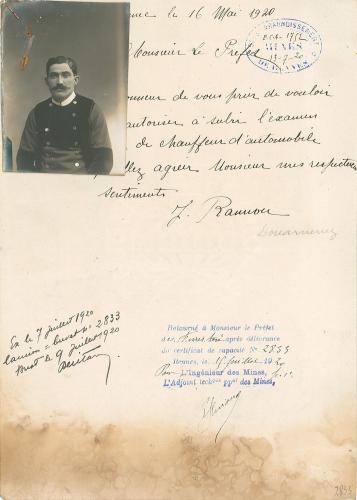 le 16 Mai 1920
Monsieur Le Préfet
de vous prier de vouloir
autoriser à subir l'examen
de chauffeur d'automobile
agréer Monsieur mes respectueux
sentements
MINES
Douarnenez
Ex le 7 juillet 1920
Camion = brevet nº 2833
Brest le 9 juillet 1920
Retourné à Monsieur le Préfet
du Finistère après délivrance
du certificat de capacité Nº 2833
Rennes, le 15 juillet 1920
Pour L'Ingénieur des Mines,
L'Adjoint techque ppal des Mines,
2833